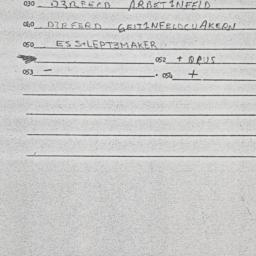 030 D3RFEED ARBET1NFELD
040 D1RFEED GEIT1NFELDCUAKERN
050 ESS+LEPT3MAKER
052 + OPUS
053 - 054 +